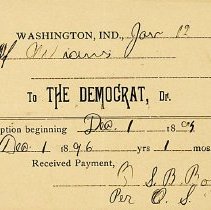 WASHINGTON, IND., Jan 12
To THE DEMOCRAT, Dr.
ption beginning Dec. 1 18
Dec 1 1896 yrs 1 mos
Received Payment,
S. B. B
Per O. S.